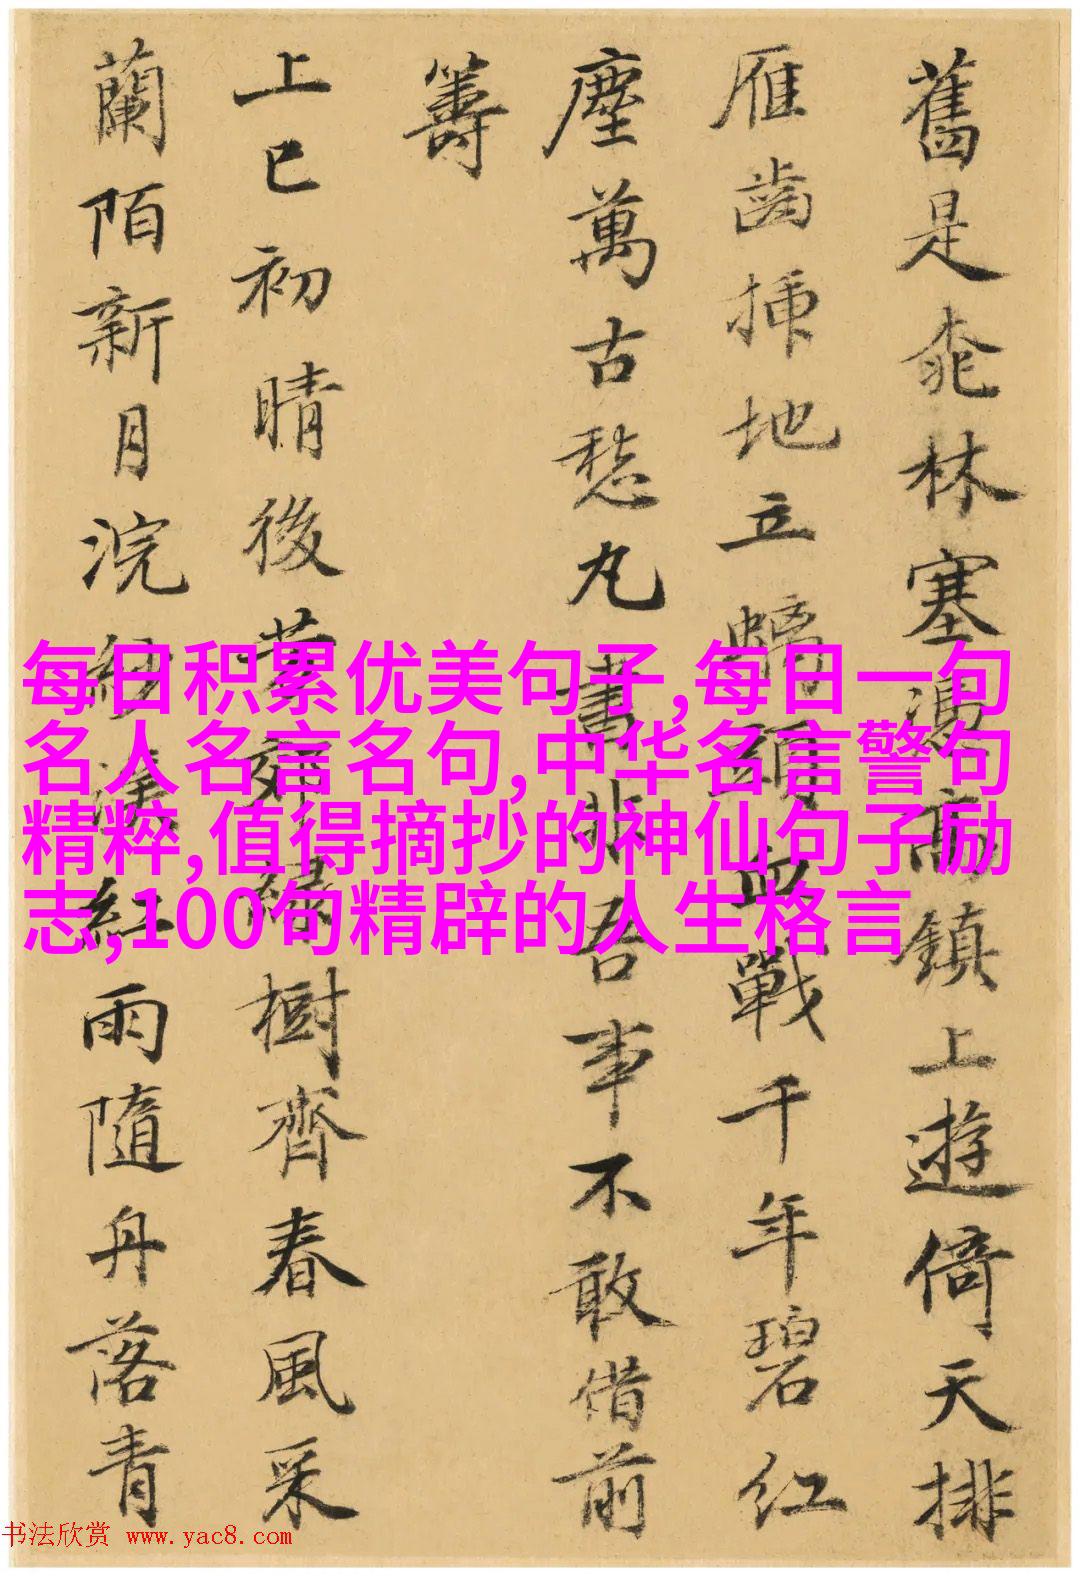 舊是桃林塞馮高鎮上遊倚天排
雁齒揷地立螭頭血戰千年碧紅
塵萬古愁丸書非吾事不敢借前
籌
上巳初晴後芳郊綠樹齊春風采
蘭陌新月浣紗溪紅雨隨舟落青
每日积累优美句子,每日一句
名人名言名句,中华名言警句
精粹,值得摘抄的神仙句子励
志,100句精辟的人生格言
书法欣赏 www.yac8.com